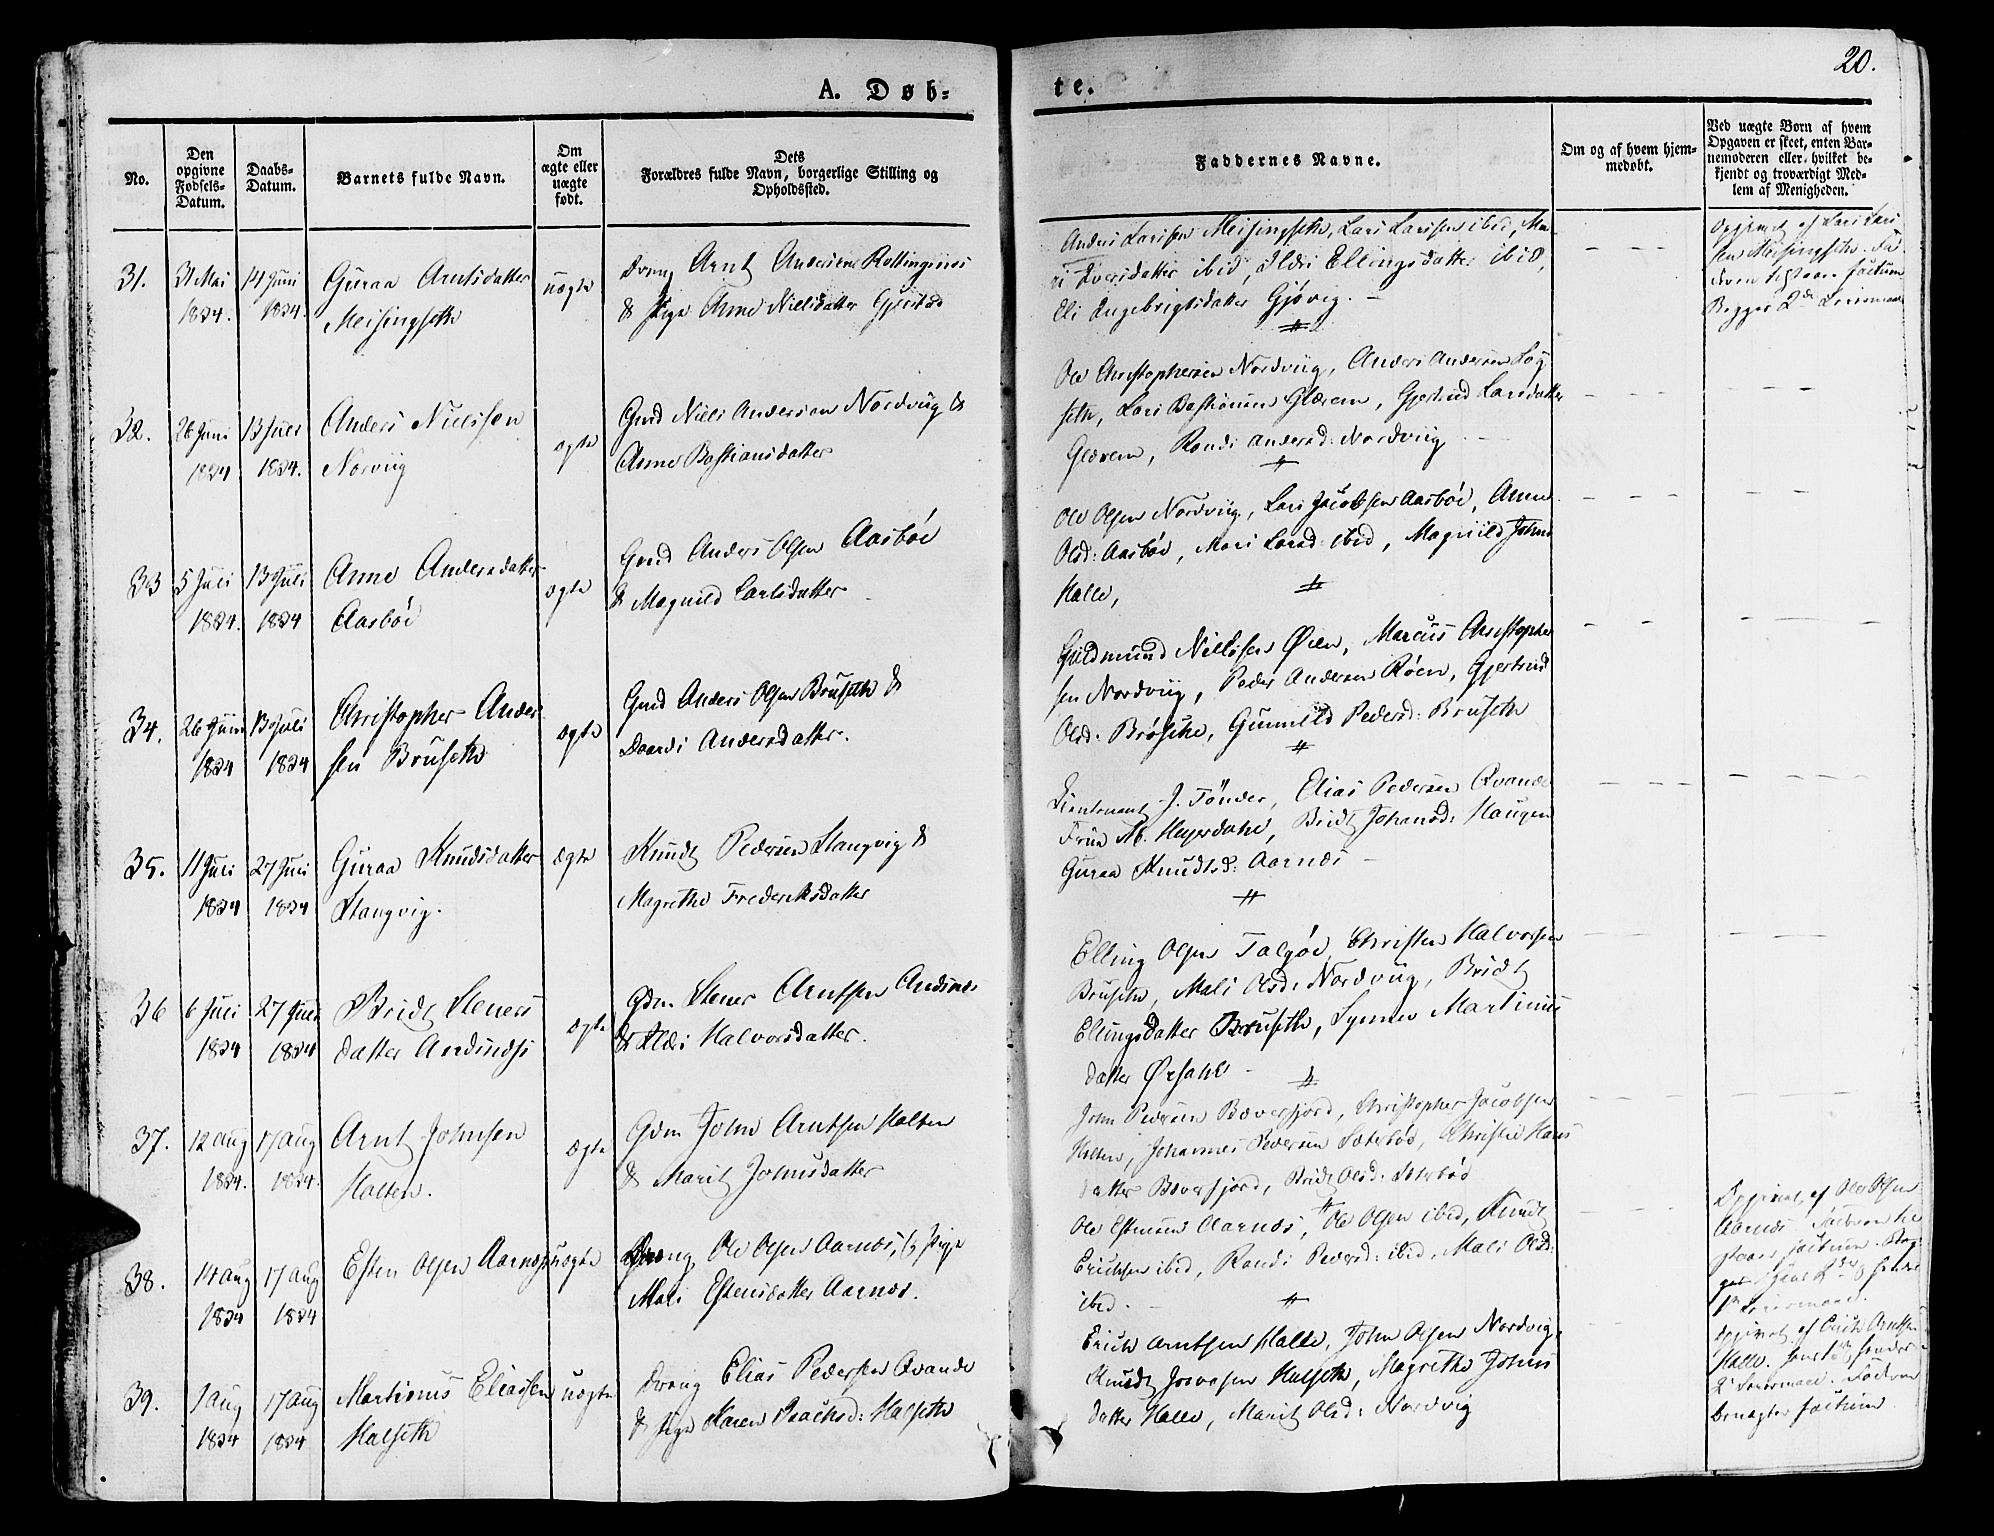 20.
A. Døb-
te.
No.
Den
opgivne
Fødsels-
Datum.
Daabs-
Datum.
Barnets fulde Navn.
Om
ægte eller
uægte
født.
Dets
Forældres fulde Navn, borgerlige Stilling og
Opholdssted.
Faddernes Navne.
Om og af hvem hjem-
medøbt.
Ved uægte Børn af hvem
Opgaven er skeet, enten Bar-
nemoderen eller, hvilket be-
kjendt og troværdigt Med-
lem af Menigheden.
31.
31 Mai
1834.
14 Juni
1834.
Guraa Arntsdatter
Meisingseth
uægte
Dreng Arnt Andersen
& Pige Anne Nielsdatter
Anders Larsen Meisingseth, Lars Larsen ibid, Ma-
ri Iversdatter ibid, Ildri Ellingsdatter ibid,
Eli Ingebrigtsdatter Gjøvig. –
Opgivet af Lars Lar-
sen Meisingseth. Fa-
deren tilstaaer factum
Begges 2de Leiermaal
32.
26 Juni
1834
13 Juli
1834.
Anders Nielsen
Norviig
ægte
Gmd Niels Andersen Nordviig &
Anne Bastiansdatter
Ole Christophersen Nordviig, Anders Andersen Løg-
seth, Lars Bastiansen Glærem, Gjertrud Larsdatter
Glærem, Randi Andersd: Nordviig
33
5 Juli
1834.
13 Juli
1834
Anne Andersdatter
Aasbøe
ægte
Gmd Anders Olsen Aasbøe
& Magnild Larsdatter
Ole Olsen Nordviig, Lars Jacobsen Aasbøe, Anne
Olsd: Aasbøe, Mari Larsd: ibid, Magnild Johns
Halle,
34.
26 Juni
1834
13 Juli
1834
Christopher Ander
sen Bruseth
ægte
Gmd Anders Olsen Bruseth &
Dordi Andersdatter.
Guldmund Nielsen Øien, Marcus Christopher
sen Nordviig, Peder Andersen Røen, Gjertrud
Olsd: Brøseth, Gunnild Pedersd: Bruseth
35.
11 Juli
1834
27 Juli
1834
Guraa Knudsdatter
Stangvig.
ægte
Knudt Pedersen Stangvig &
Magrethe Frederiksdatter
Lieutenant J. Tønder, Elias Pedersen Qvande
Frue M. Heyerdahl, Bridt Johansd: Haugen
Guraa Knudtsd: Aarnæs –
36
6 Juli
1834
27 Juli
1834
Bridt Steners
datter
ægte
Gdm. Stener Arntsen
& Ildri Halvorsdatter.
Elling Olsen Talgøe, Christen Halvorsen
Bruseth, Mali Olsd: Nordviig, Bridt
Ellingsdatter Bruseth, Synnev Martinus
datter Ørsahl –
37.
12 Aug
1834.
17 Aug
1834.
Arnt Johnsen
Halten.
ægte
Gdm John Arntsen Halten
& Marit Johnsdatter
John Pedersen Bæverfjord, Christopher Jacobsen
Halten, Johannes Pedersen Sæterbøe, Christie Hans
datter Bæverfjord, Bridt Olsd: Sæterbøe
38.
14 Aug
1834
17 Aug
1834
Esten Olsen Aarnæs
uægte
Dreng Ole Olsen Aarnæs, & Pige
Mali Estensdatter Aarnæs.
Ole Estensen Aarnæs, Ole Olsen ibid, Knudt
Erichsen ibid, Randi Pedersd: ibid, Mali Olsd:
ibid. –
Opgivet af Ole Olsen
Aarnæs. Faderen til
staaer factum.
Leiermaal.
39.
1 Aug
1834
17 Aug
1834
Martinus Eliassen
Halseth
uægte
Dreng Elias Pedersen Qvande
& Pige Karen Isachsd: Halseth
Erich Arntsen Halle, John Olsen Nordvig,
Knudt Halseth, Magrethe Johns
datter Halle, Marit Olsd: Nordvig
Opgivet af Erich Arntsen
Halle.
2 Leiermaal. Faderen
benægter factum